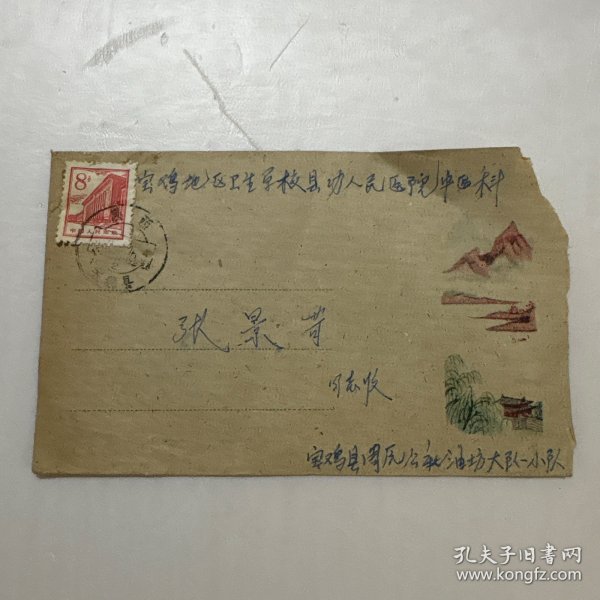 8分
中国人民邮政
宝鸡地区卫生学校县功人民医院中医科
张景
同志收
宝鸡县周原公社油坊大队一小队
孔夫子旧书网
www.kongfz.com